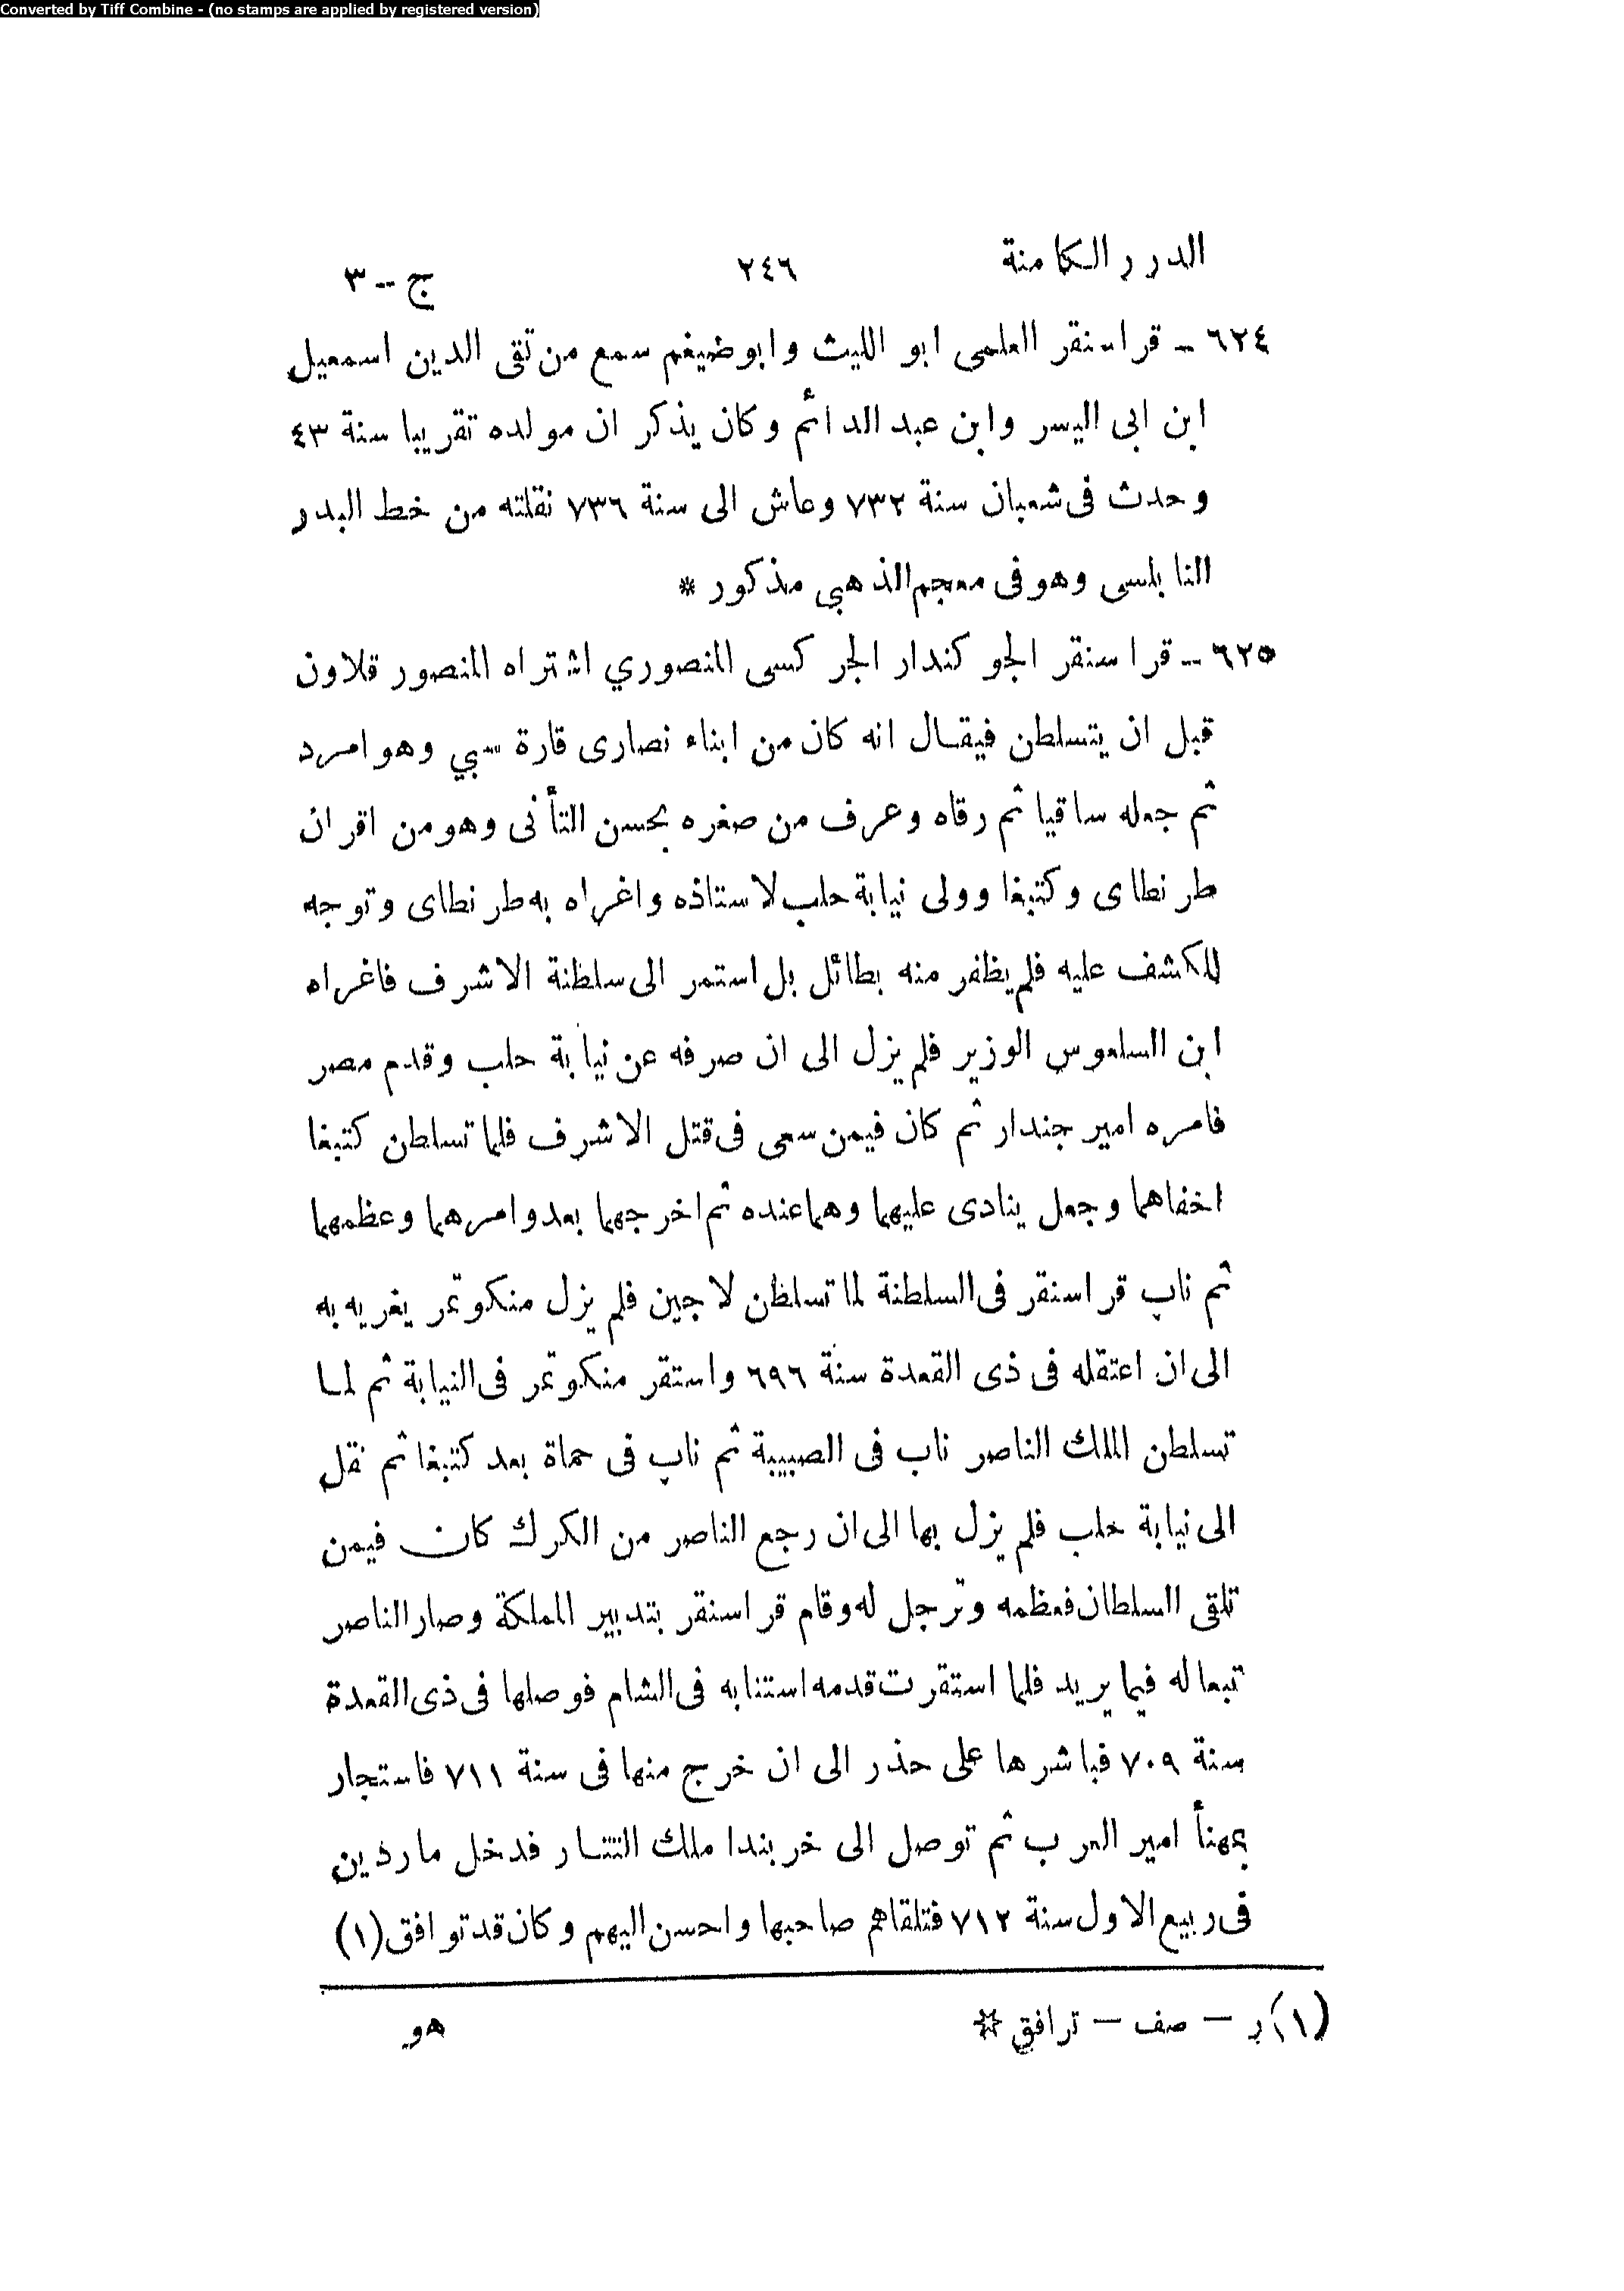 Converted by Tiff Combine - (no stamps are applied by registered version)
الدرر الكامنة ٢٤٦ ج -- ٣
٦٢٤ - قراسنقر العلمى ابو الليث وابو ضيغم سمع من تقى الدين اسمعيل
ابن ابى اليسر وابن عبد الدائم وكان يذكر ان مولده تقريبا سنة ٤٣
وحدث فى شعبان سنة ٧٣٢ وعاش الى سنة ٧٣٦ نقلته من خط البدر
النابلسى وهو فى معجم الذهبي مذكور *
٦٢٥ - قراسنقر الجوكندار الجركسى المنصوري اشتراه المنصور قلاون
قبل ان يتسلطن فيقال انه كان من ابناء نصارى قارة سبي وهو امرد
ثم جعله ساقيا ثم رقاه وعرف من صغره بحسن التأنى وهو من اقران
طرنطاى وكتبغا وولى نيابة حلب لاستاذه واغراه به طرنطاى وتوجه
للكشف عليه فلم يظفر منه بطائل بل استمر الى سلطنة الاشرف فاغراه
ابن السلعوس الوزير فلم يزل الى ان صرفه عن نيابة حلب وقدم مصر
فامره امير جندار ثم كان فيمن سعى فى قتل الاشرف فلما تسلطن كتبغا
اخفاهما وجعل ينادى عليهما وهما عنده ثم اخرجهما بعد وامرهما وعظمهما
ثم ناب قراسنقر فى السلطنة لما تسلطن لاجين فلم يزل منكوتمر يغريه به
الى ان اعتقله فى ذى القعدة سنة ٦٩٦ واستقر منكوتمر فى النيابة ثم لما
تسلطن الملك الناصر ناب فى الصبيبة ثم ناب فى حماة بعد كتبغا ثم نقل
الى نيابة حلب فلم يزل بها الى ان رجع الناصر من الكرك كان فيمن
تلقى السلطان فعظمه وترجل له وقام قراسنقر بتدبير المملكة وصار الناصر
تبعا له فيما يريد فلما استقرت قدمه استنابه فى الشام فوصلها فى ذى القعدة
سنة ٧٠٩ فباشرها على حذر الى ان خرج منها فى سنة ٧١١ فاستجار
بمهنأ امير العرب ثم توصل الى خربندا ملك التتار فدخل ماردين
فى ربيع الاول سنة ٧١٢ فتلقاهم صاحبها واحسن اليهم وكان قد توافق (١)
(١) ر - صف - ترافق *
هو